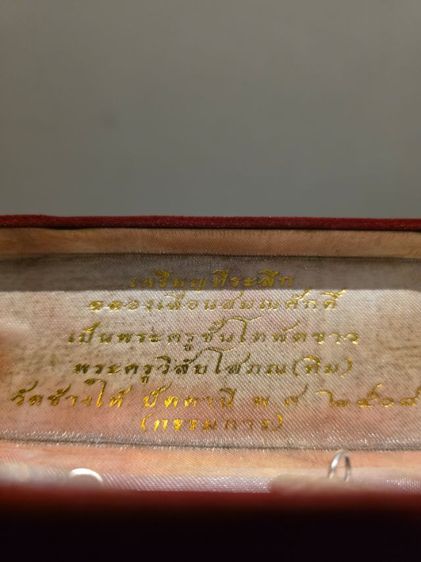 เหรียญที่ระลึก
ฉลองเลื่อนสมณศักดิ์
เป็นพระครูชั้นโทพัดขาว
พระครูวิสัยโสภณ(ทิม)
วัดช้างให้ ปัตตานี พ.ศ ๒๕๐๘
(กรรมการ)